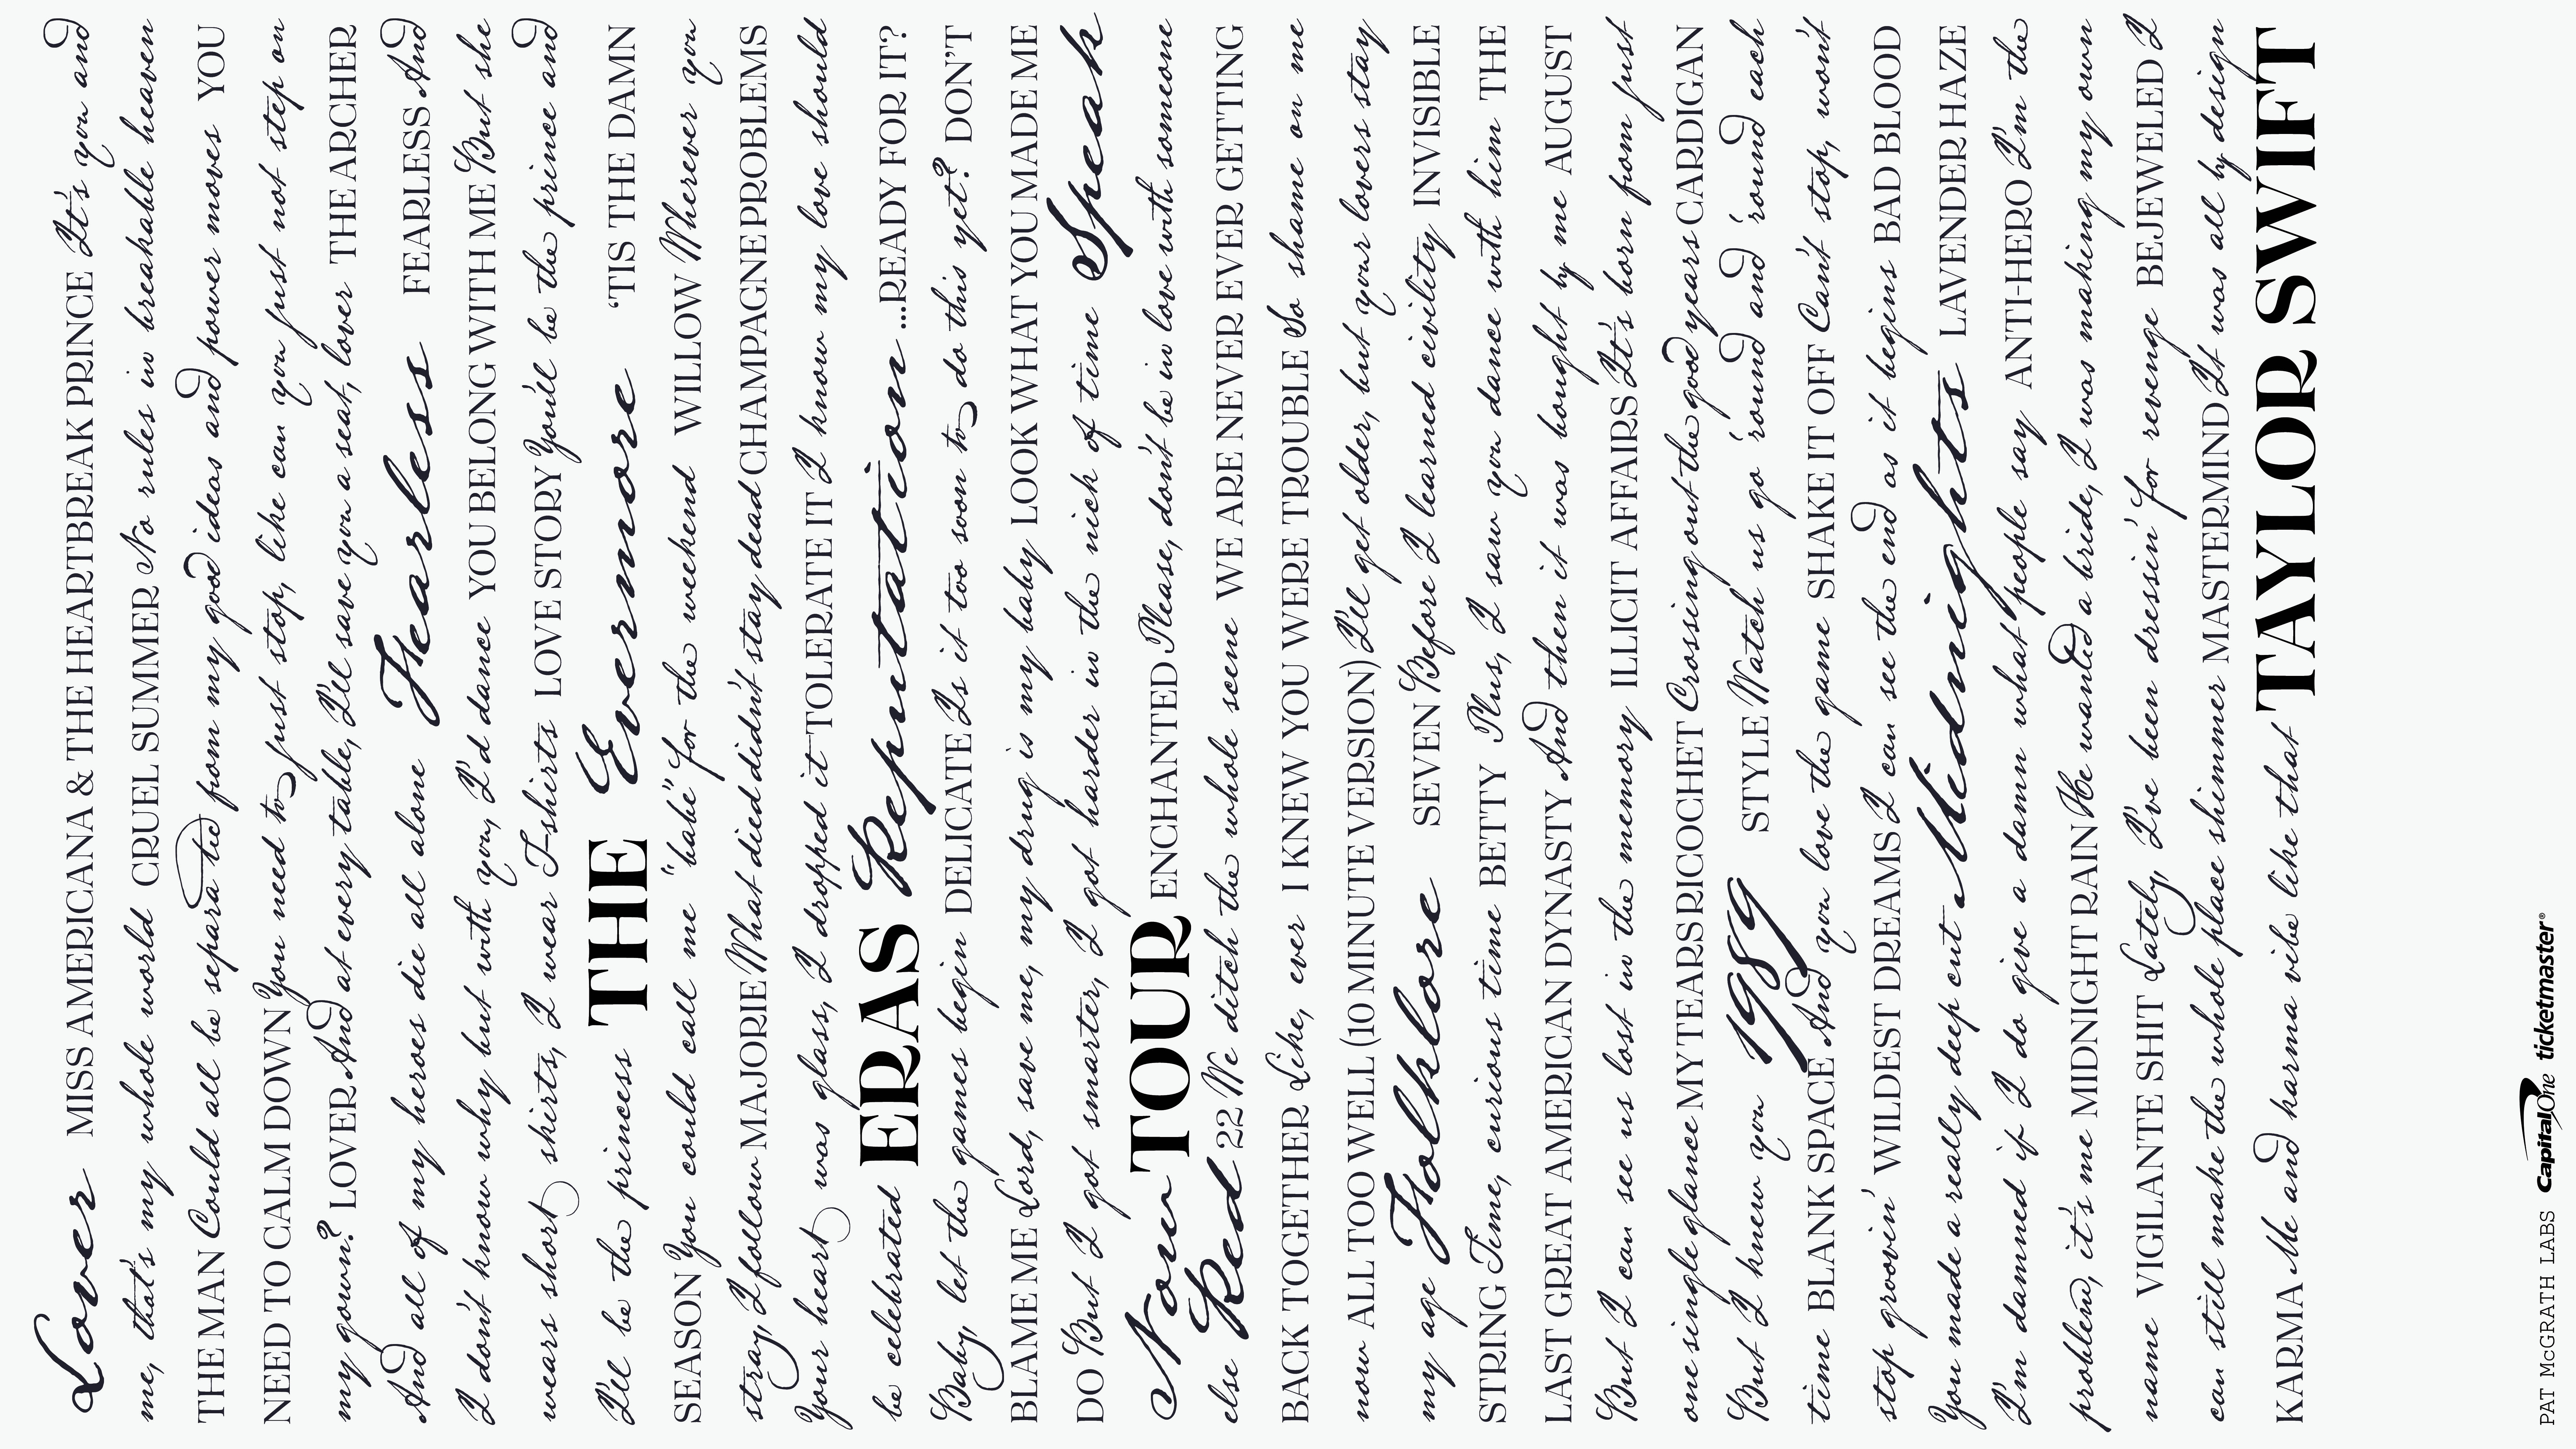 Lover MISS AMERICANA & THE HEARTBREAK PRINCE It's you and
me, that's my whole world CRUEL SUMMER No rules in breakable heaven
THE MAN Could all be separated from my good ideas and power moves YOU
NEED TO CALM DOWN You need to just stop, like can you just not step on
my gown? LOVER And at every table, I'll save you a seat, lover THE ARCHER
And all of my heroes die all alone Fearless FEARLESS And
I don't know why but with you, I'd dance YOU BELONG WITH ME But she
wears short shirts, I wear T-shirts LOVE STORY You'll be the prince and
I'll be the princess THE Evermore 'TIS THE DAMN
SEASON You could call me "babe" for the weekend WILLOW Wherever you
stray, I follow MAJORIE What died didn't stay dead CHAMPAGNE PROBLEMS
Your heart was glass, I dropped it TOLERATE IT I know my love should
be celebrated ERAS Reputation ...READY FOR IT?
Baby, let the games begin DELICATE Is it too soon to do this yet? DON'T
BLAME ME Lord, save me, my drug is my baby LOOK WHAT YOU MADE ME
DO But I got smarter, I got harder in the nick of time Speak
Now TOUR ENCHANTED Please, don't be in love with someone
else Red 22 We ditch the whole scene WE ARE NEVER EVER GETTING
BACK TOGETHER Like, ever I KNEW YOU WERE TROUBLE So shame on me
now ALL TOO WELL (10 MINUTE VERSION) I'll get older, but your lovers stay
my age Folklore SEVEN Before I learned civility INVISIBLE
STRING Time, curious time BETTY Plus, I saw you dance with him THE
LAST GREAT AMERICAN DYNASTY And then it was bought by me AUGUST
But I can see us lost in the memory ILLICIT AFFAIRS It's born from just
one single glance MY TEARS RICOCHET Crossing out the good years CARDIGAN
But I knew you 1989 STYLE Watch us go 'round and 'round each
time BLANK SPACE And you love the game SHAKE IT OFF Can't stop, won't
stop groovin' WILDEST DREAMS I can see the end as it begins BAD BLOOD
You made a really deep cut Midnights LAVENDER HAZE
I'm damned if I do give a damn what people say ANTI-HERO I'm the
problem, it's me MIDNIGHT RAIN He wanted a bride, I was making my own
name VIGILANTE SHIT Lately, I've been dressin' for revenge BEJEWELED I
can still make the whole place shimmer MASTERMIND It was all by design
KARMA Me and karma vibe like that TAYLOR SWIFT
PAT McGRATH LABS Capital One ticketmaster®